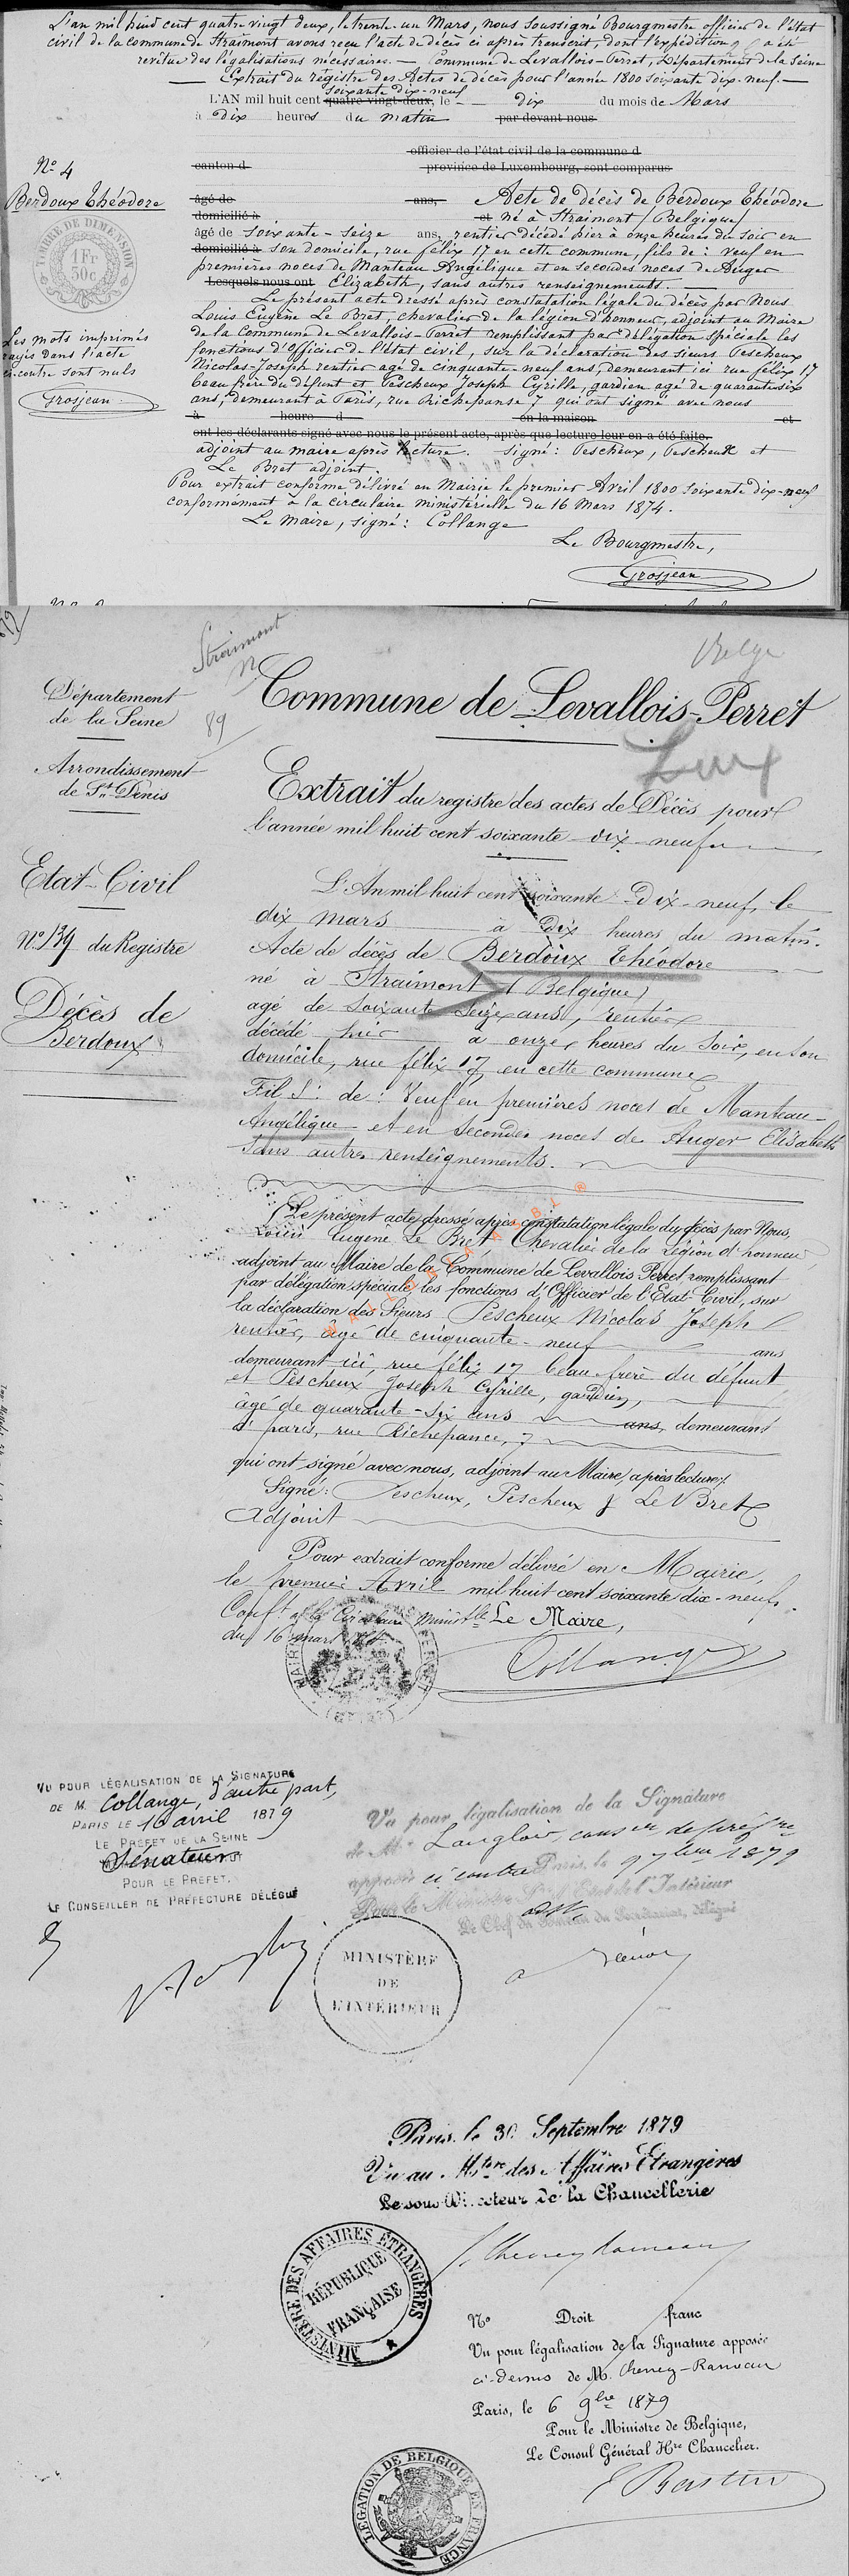 L'an mil huit cent quatre vingt deux, le trente-un Mars, nous soussigné Bourgmestre officier de l'état
civil de la commune de Straimont avons reçu l'acte de décès ci après transcrit, dont l'expédition a été
revêtue des légalisations nécessaires. — Commune de Levallois-Perret, Département de la Seine
— Extrait du registre des Actes de décès pour l'année 1800 soixante dix-neuf. —
soixante dix-neuf
L'AN mil huit cent quatre-vingt-deux, le - — dix du mois de Mars
à dix heures du matin par devant nous
officier de l'état civil de la commune d
canton d province de Luxembourg, sont comparus
N° 4
Berdoux Théodore
TIMBRE DE DIMENSION
1Fr
50c
Les mots imprimés
rayés dans l'acte
ci-contre sont nuls
Grosjean
âgé de ans, Acte de décès de Berdoux Théodore
domicilié à et né à Straimont (Belgique)
âgé de soixante-seize ans, rentier décédé hier à onze heures du soir en
domicilié à son domicile, rue félix 17 en cette commune, fils de : veuf en
premières noces de Manteau Angélique et en secondes noces de Auger
Lesquels nous ont Elizabeth, sans autres renseignements. —
Le présent acte dressé après constatation légale du décès par Nous
Louis Eugène Le Bret, chevalier de la légion d'honneur, adjoint au Maire
de la Commune de Levallois-Perret remplissant par délégation spéciale les
fonctions d'Officier de l'État civil, sur la déclaration des sieurs Pescheux
Nicolas-Joseph rentier agé de cinquante-neuf ans, demeurant ici rue félix 17
beau frère du défunt et Pescheux Joseph Cyrille, gardien agé de quarante-six
ans, demeurant à Paris, rue Richepanse 7 qui ont signé avec nous
à heure d en la maison et
ont les déclarants signé avec nous le présent acte, après que lecture leur en a été faite.
adjoint au maire après lecture. Signé : Pescheux, Pescheux et
Le Bret adjoint.
Pour extrait conforme délivré en Mairie le premier Avril 1800 soixante dix-neuf
conformément à la circulaire ministérielle du 16 Mars 1874.
Le maire, signé : Collange
Le Bourgmestre,
Grosjean
Straimont
89
Belge
Lux
Département
de la Seine
Arrondissement
de St Denis
Etat-Civil
N° 139 du Registre
Décès de
Berdoux
Commune de Levallois-Perret
Extrait du registre des actes de Décès pour
l'année mil huit cent soixante dix-neuf
L'An mil huit cent soixante Dix-neuf, le
dix mars à Dix heures du matin.
Acte de décès de Berdoux Théodore
né à Straimont (Belgique)
agé de soixante seize ans, rentier
décédé hier à onze heures du soir, en son
domicile, rue félix 17, en cette commune
Fils : de : Veuf en premières noces de Manteau
Angélique et en secondes noces de Auger Elisabeth
sans autres renseignements.
Le présent acte dressé après constatation légale du décès par Nous,
Louis Eugène Le Bret Chevalier de la Légion d'honneur
adjoint au Maire de la Commune de Levallois Perret remplissant
par délégation spéciale les fonctions d'Officier de l'Etat-Civil, sur
la déclaration des Sieurs Pescheux Nicolas Joseph
rentier, âgé de cinquante-neuf ans
demeurant ici, rue félix 17 beau-frère du défunt
et Pescheux Joseph Cyrille, gardien,
âgé de quarante-six ans ans, demeurant
à paris, rue Richepance, 7
qui ont signé avec nous, adjoint au Maire, après lecture.
Signé : Pescheux, Pescheux & Le Bret
Adjoint
Pour extrait conforme délivré en Mairie,
le premier Avril mil huit cent soixante dix-neuf.
Conft à la Circulaire Ministlle Le Maire,
du 16 mars
Collange
VU POUR LÉGALISATION DE LA SIGNATURE
DE M. Collange, d'autre part,
PARIS LE 10 avril 1879
LE PRÉFET DE LA SEINE
Sénateur
POUR LE PRÉFET.
LE CONSEILLER DE PRÉFECTURE DÉLÉGUÉ
Vu pour légalisation de la Signature
de Mr Langlois, conser de préfre
apposée ci contre Paris, le 9 7bre 1879
Pour le Ministre de l'Intérieur
Le Chef du Bureau du Secrétariat, délégué
MINISTÈRE
DE
L'INTÉRIEUR
Paris, le 30 Septembre 1879
Vu au Mtère des Affaires Etrangères
Le sous Directeur de la Chancellerie
MINISTÈRE DES AFFAIRES ÉTRANGÈRES
RÉPUBLIQUE
FRANÇAISE
N° Droit franc
Vu pour légalisation de la Signature apposée
ci-dessus de M. Cheney-Rameau
Paris, le 6 9bre 1879
Pour le Ministre de Belgique,
Le Consul Général Hre Chancelier.
E Bastin
LÉGATION DE BELGIQUE EN FRANCE